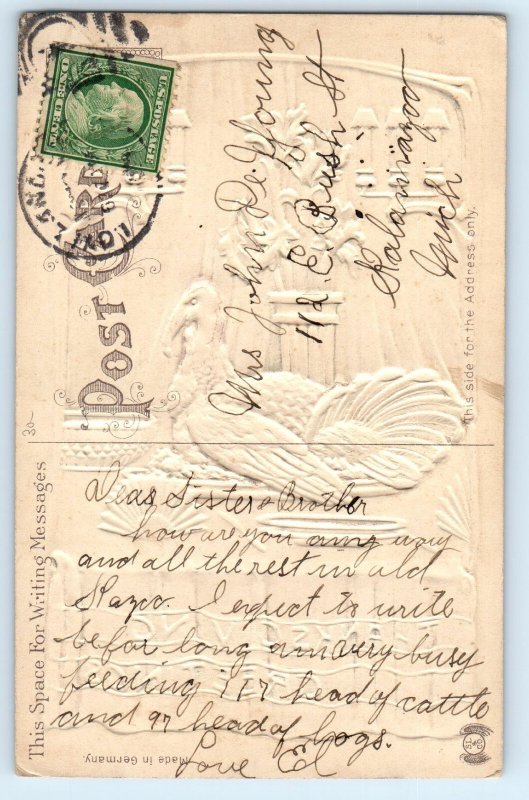 POST CARD
U.S. POSTAGE
ONE CENT
Mrs John De Young
E. Bush St
Kalamazoo
Mich
This side for the Address only.
30-
This Space For Writing Messages
Dear Sister & Brother
how are you any way
and all the rest in old
Kazoo. I expect to write
befor long am very busy
feeding 117 head of cattle
and 97 head of hogs.
Love
Made in Germany.